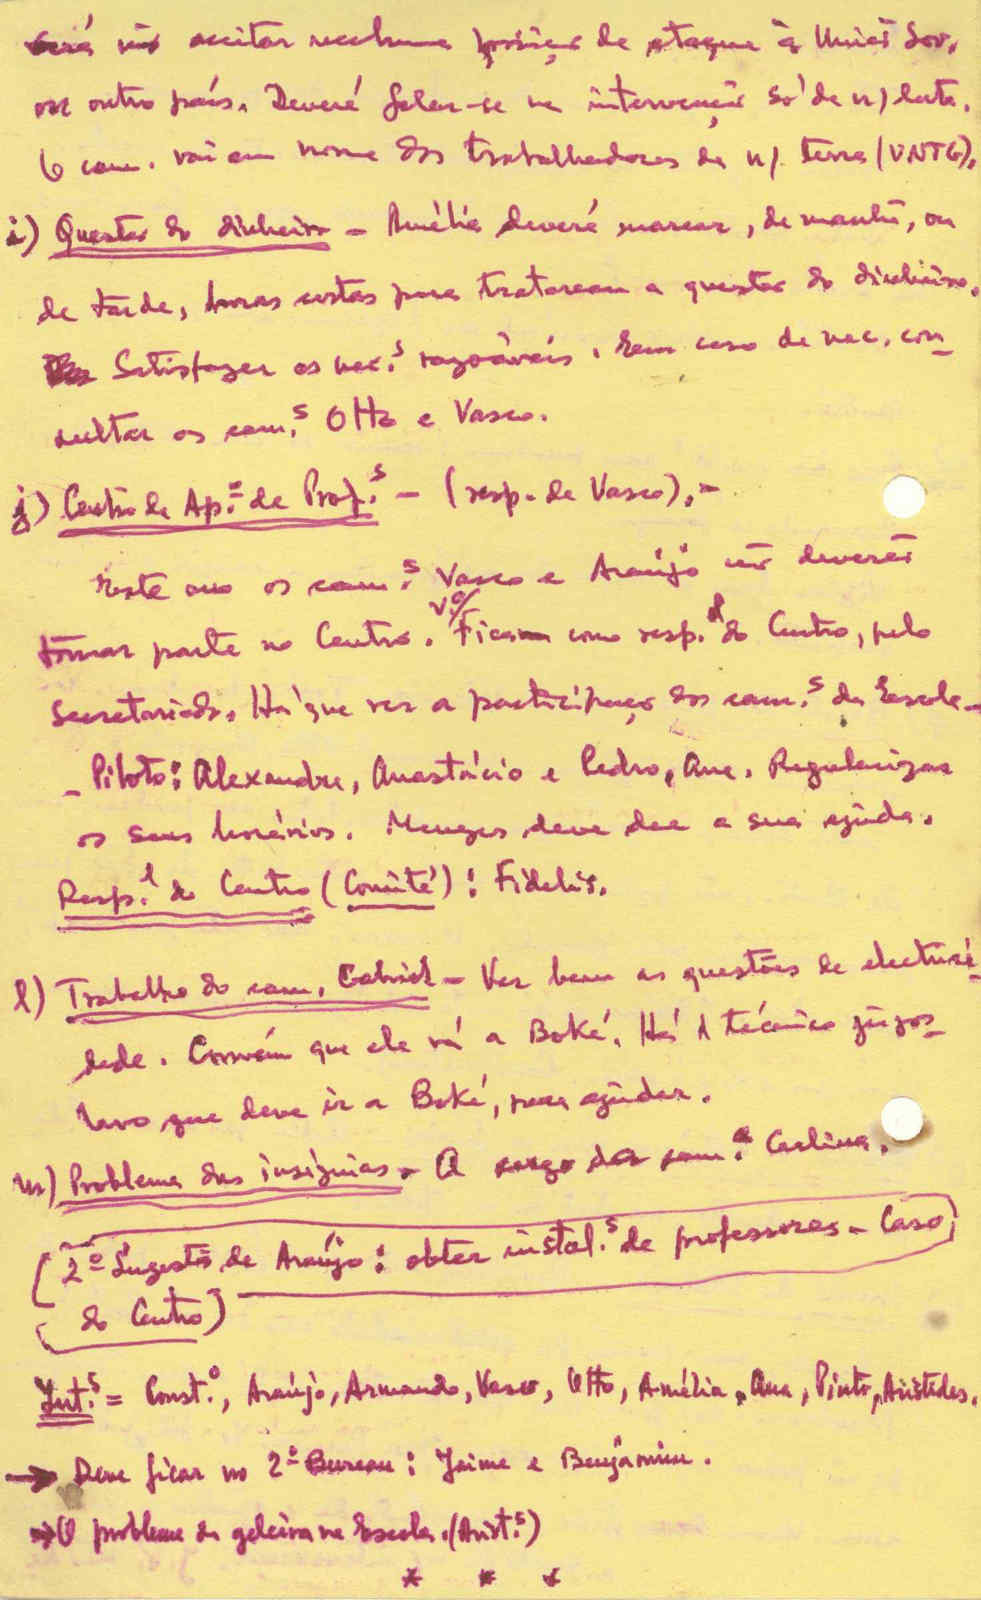 verá não aceitar nenhuma posição de ataque à União Sov.
ou outro país. Deverá falar-se na intervenção só de n/ luta.
O cam. vai em nome dos trabalhadores da n/. terra (UNTG).
i) Questão do dinheiro - Amélia deverá marcar, de manhã, ou
de tarde, horas certas para tratarem a questão do dinheiro.
Satisfazer as nec.s razoáveis. Em caso de nec. con-
sultar os cam.s Otto e Vasco.
j) Centro de Ap.º de Prof.s - (resp. de Vasco).-
Este ano os cam.s Vasco e Araújo não deverão
tomar parte no Centro. Ficam como resp. do Centro, pelo
Secretariado. Há que ver a participação dos cam.s da Escola-
- Piloto: Alexandre, Anastácio e Pedro, Ana. Regularizar
os seus horários. Mengos deve dar a sua ajuda.
Resp.l do Centro (Comité): Fidelis.
l) Trabalho do cam. Gabriel - Ver bem as questões de electrici-
dade. Convém que ele vá a Boké. Há 1 técnico jugos-
lavo que deve ir a Boké, para ajudar.
m) Problema das insígnias - A cargo da cam.a Carlina.
(2ª Sugestão de Araújo: obter instal.s de professores - Caso
do Centro)
Int.s = Const.o, Araújo, Armando, Vasco, Otto, Amélia, Ana, Pinto, Aristides.
→ Deve ficar no 2º Bureau: Jaime e Benjamim.
→ O problema da geleira na Escola. (Arist.s)
* * *